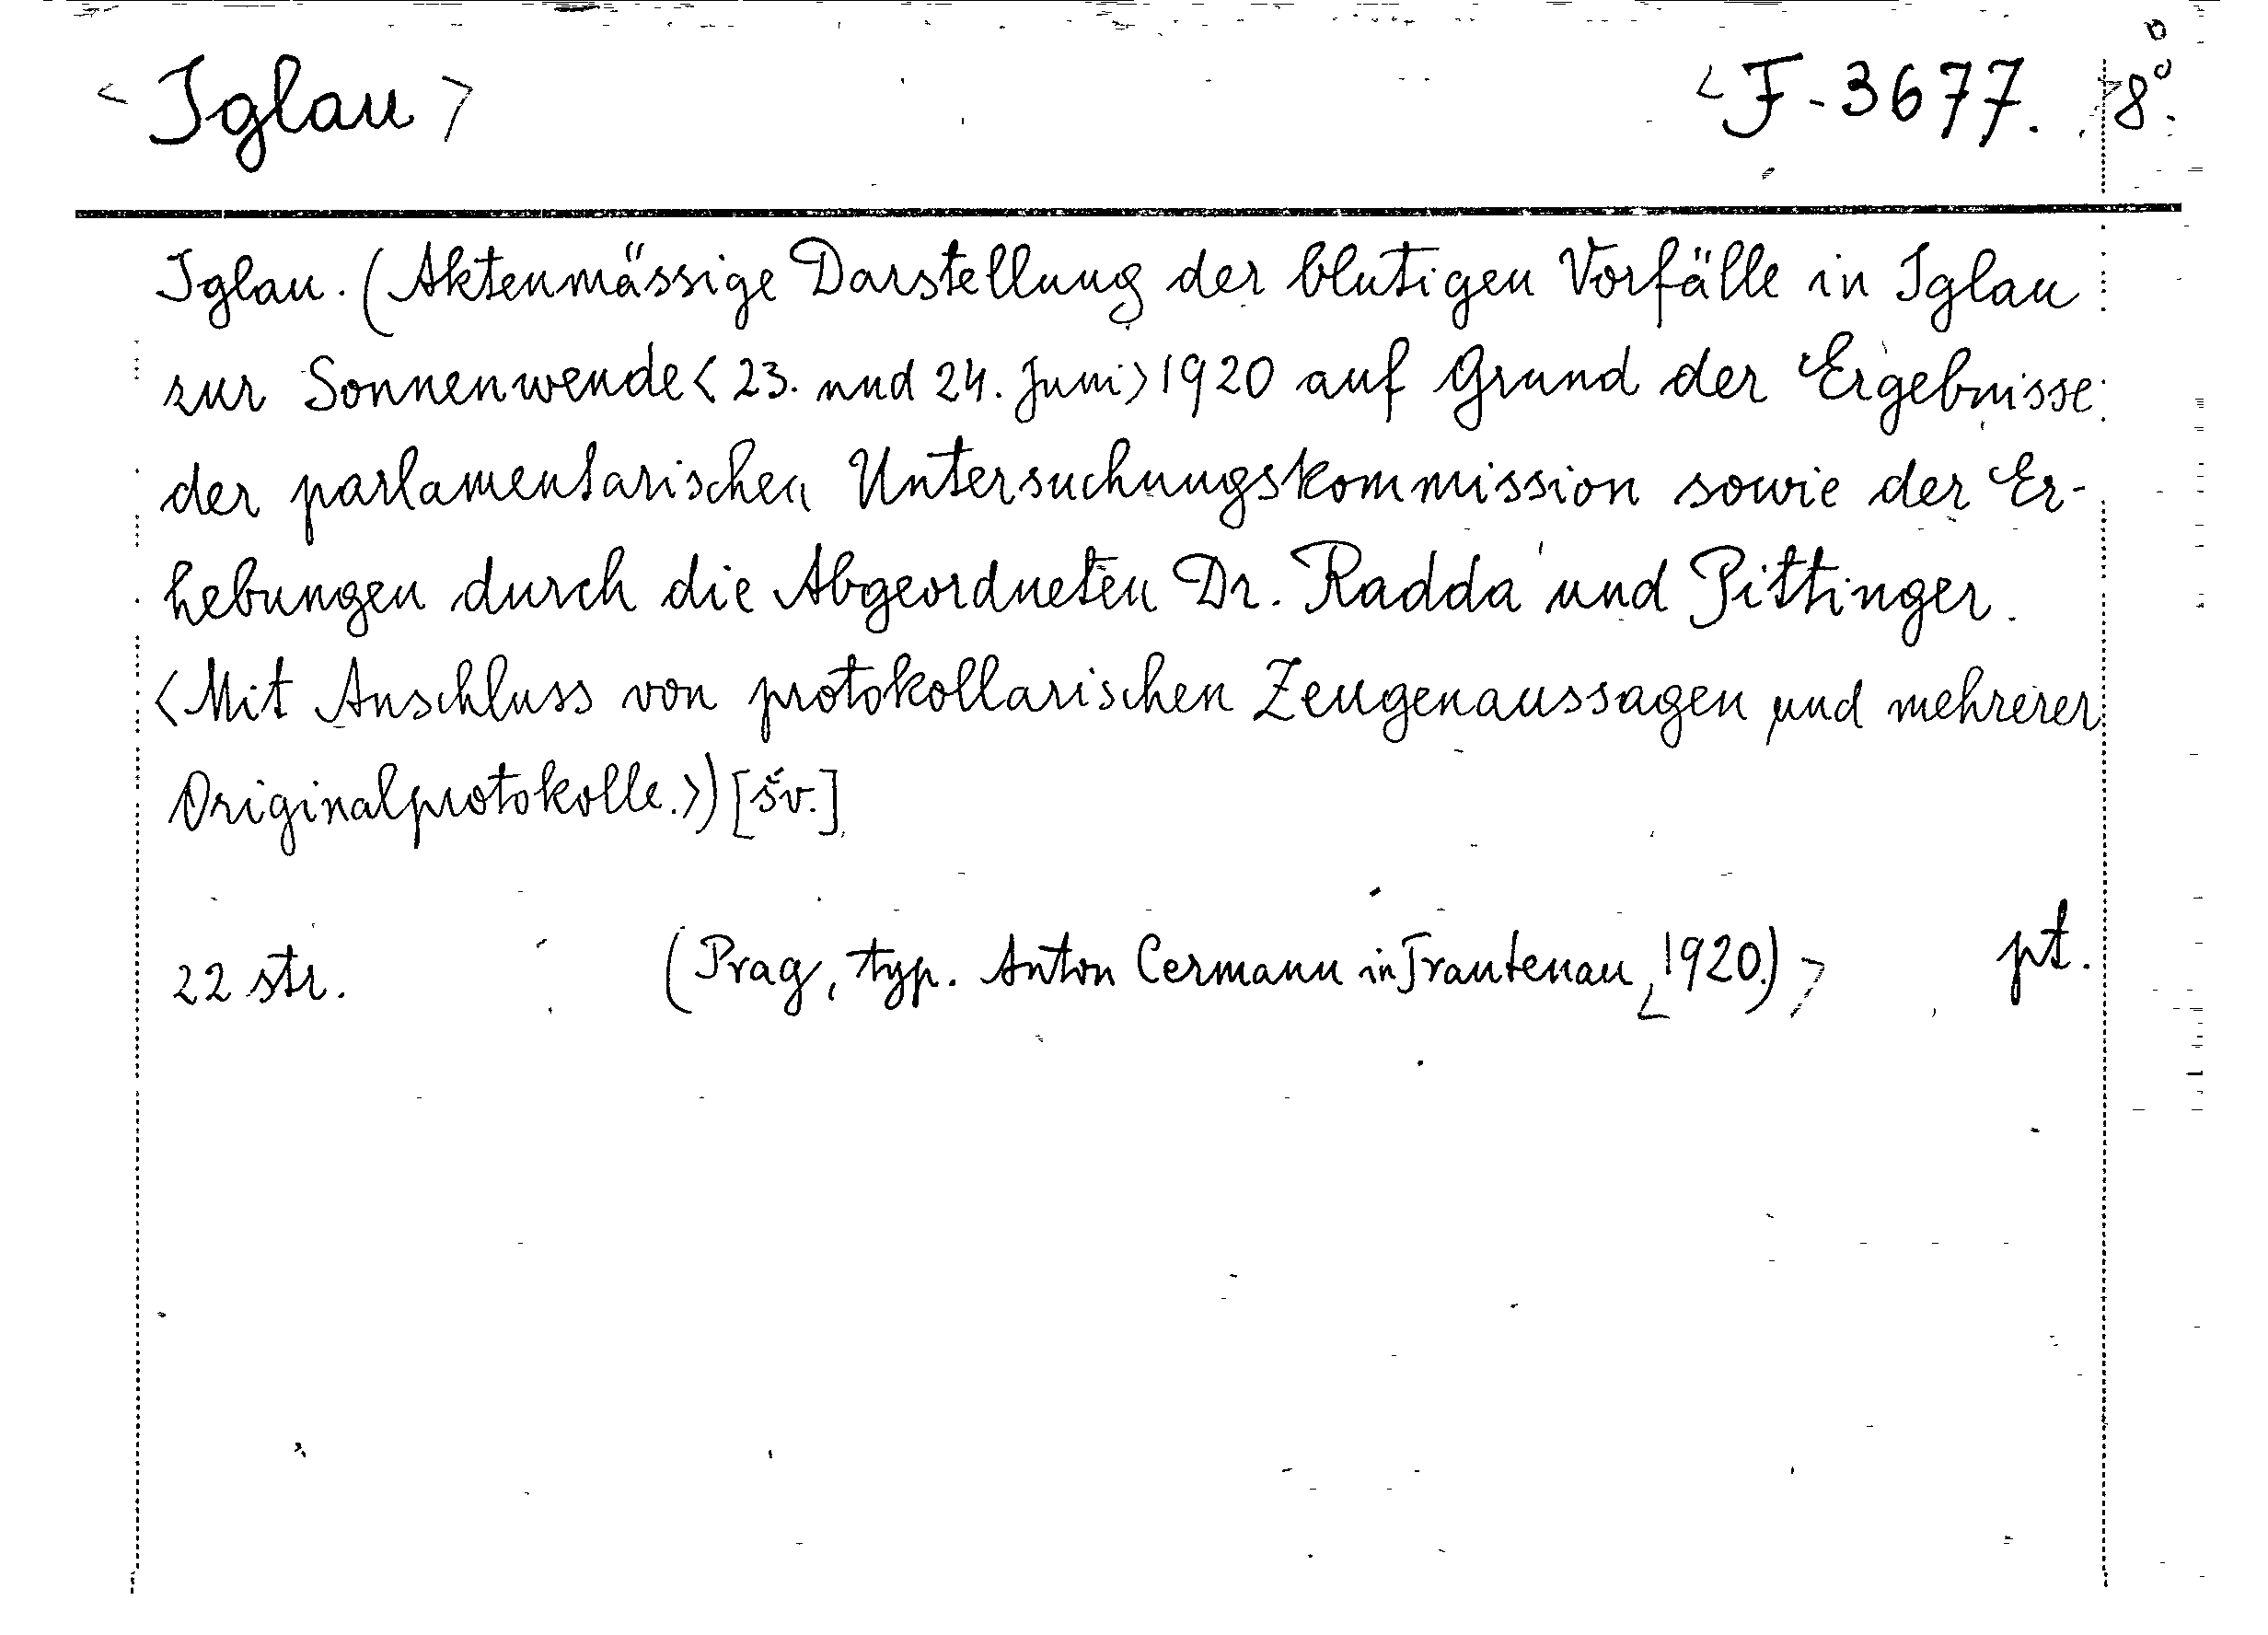 <Iglau> <F-3677. 8°.
Iglau. (Aktenmässige Darstellung der blutigen Vorfälle in Iglau
zur Sonnenwende <23. und 24. Juni> 1920 auf Grund der Ergebnisse
der parlamentarischen Untersuchungskommission sowie der Er-
hebungen durch die Abgeordneten Dr. Radda und Pittinger.
<Mit Anschluss von protokollarischen Zeugenaussagen und mehrerer
Originalprotokolle.>) [šv.]
22 str. (Prag, typ. Anton Cermann in Trautenau, <1920.)> pt.